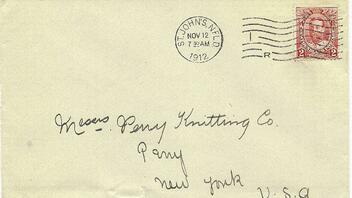 ST. JOHN'S. NFLD.
NOV 12
7 30 AM
1912
I
R
2 2
Messrs. Perry Knitting Co.
Perry
New York
U.S.A